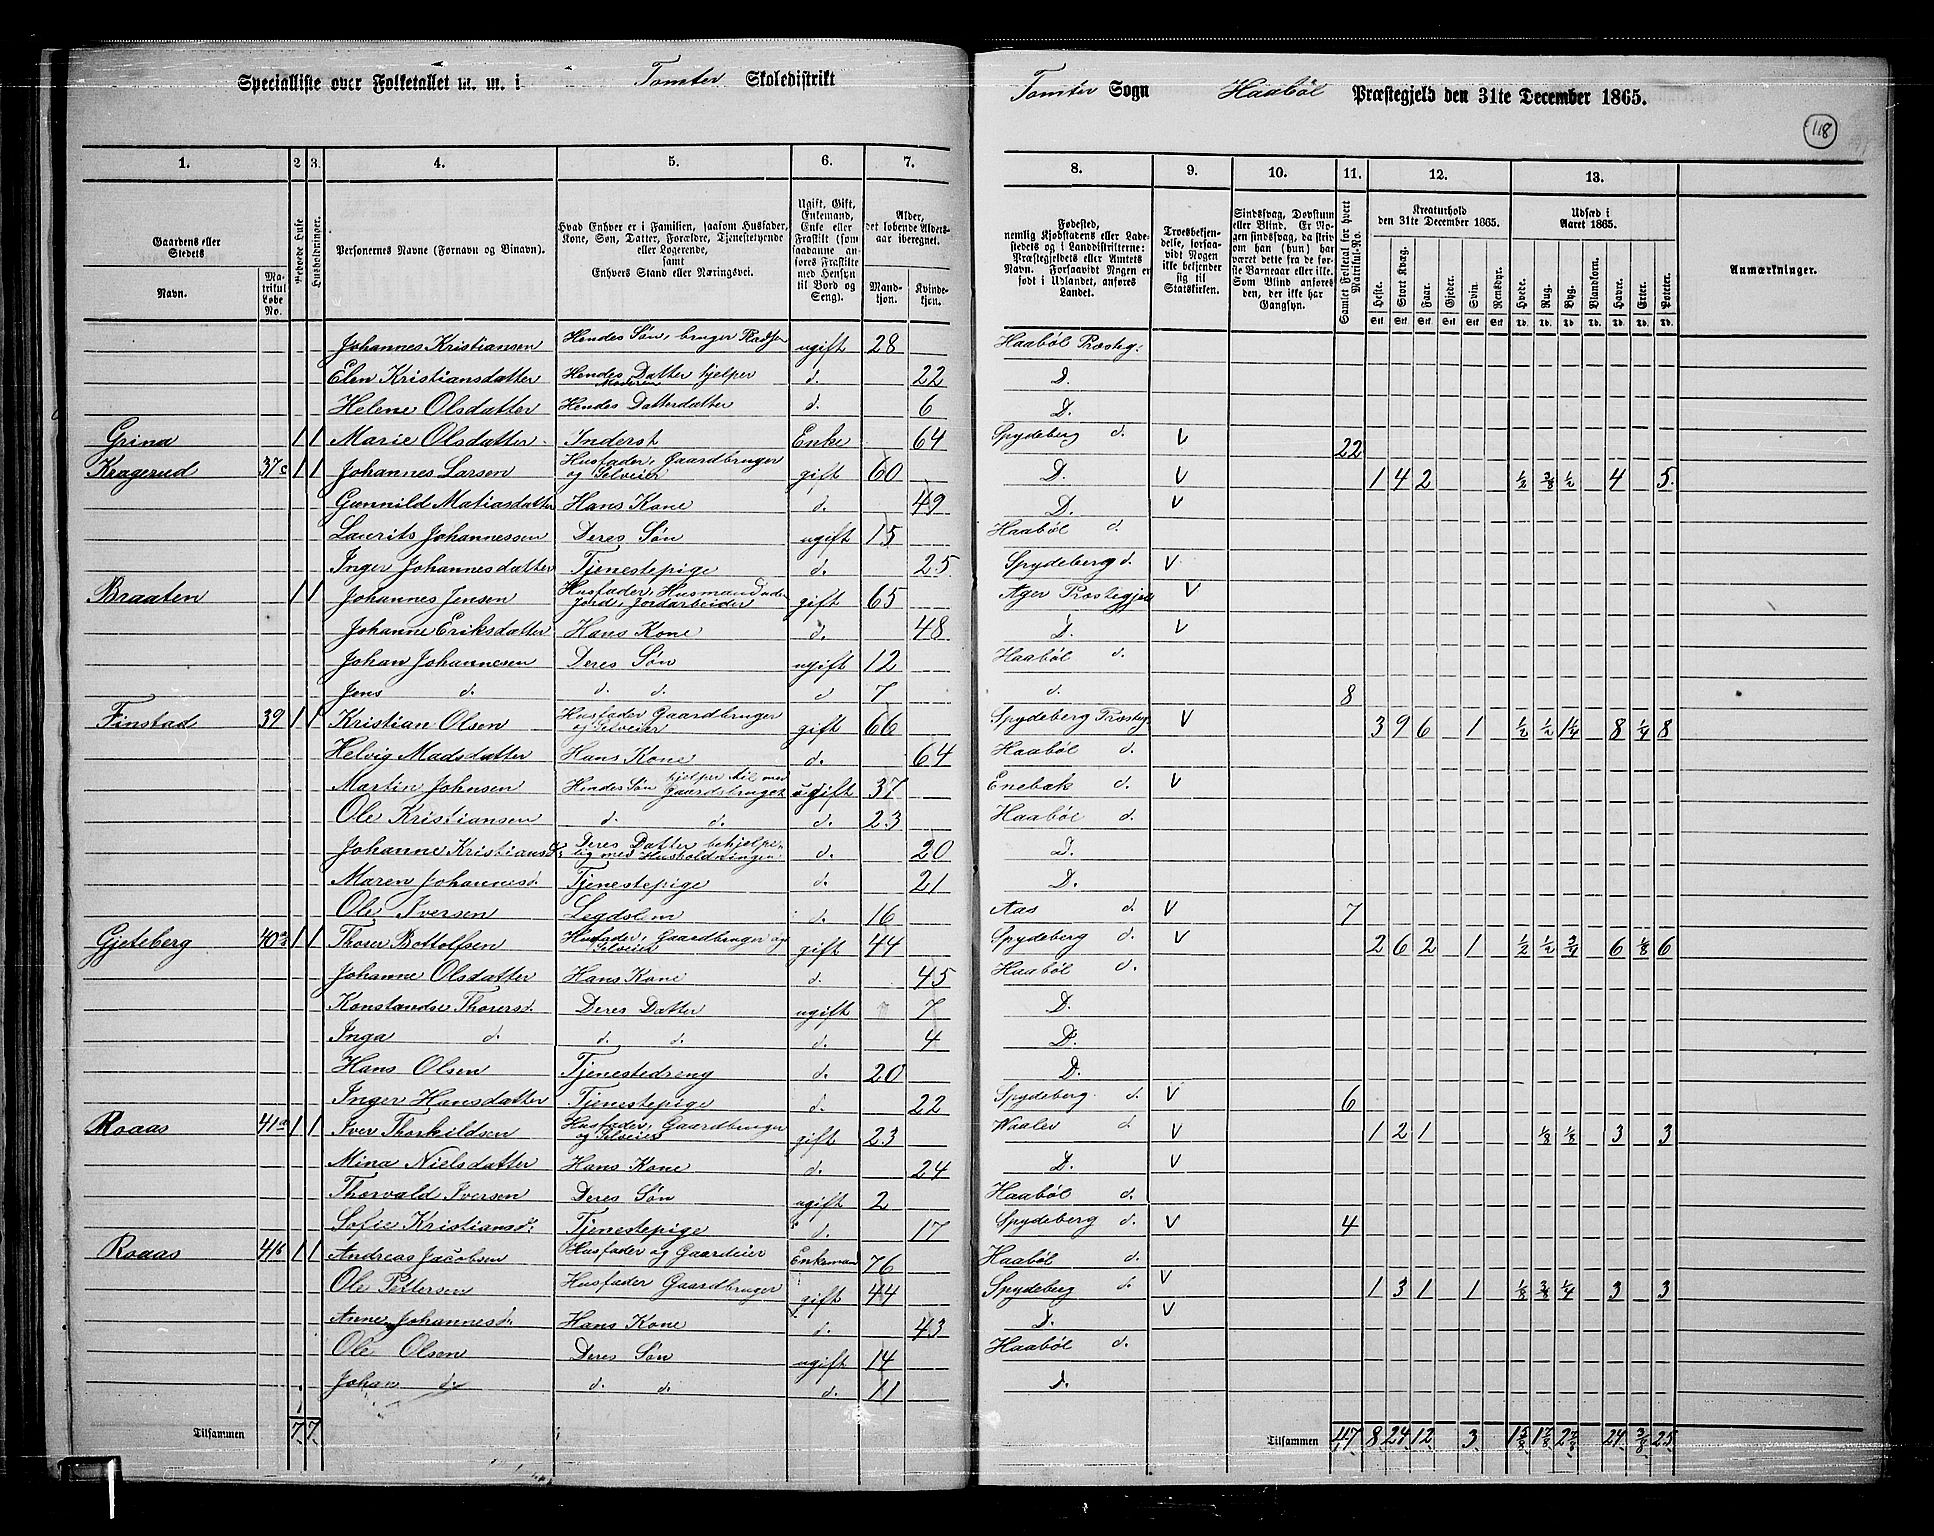 Specialliste over Folketallet m. m. i Tomter Skoledistrikt
Tomter Sogn Haabøl Præstegjeld den 31te December 1865.
118
1. 2 3. 4. 5. 6. 7. 8. 9. 10. 11. 12. 13.
Gaardens eller Stedets Navn. Matrikul Løbe No. Beboede Huse Husholdninger. Personernes Navne (Fornavn og Binavn).
Hvad Enhver er i Familien, saasom Husfader, Kone, Søn, Datter, Forældre, Tjenestetyende eller Logerende, samt Enhvers Stand eller Næringsvei.
Ugift, Gift, Enkemand, Enke eller Fraskilt (som saadanne anføres Fraskilte med Hensyn til Bord og Seng).
Alder, det løbende Alders-aar iberegnet. Mandkjøn. Kvindekjøn.
Fødested, nemlig Kjøbstadens eller Ladestedets og i Landdistrikterne: Præstegjeldets eller Amtets Navn. Forsaavidt Nogen er født i Udlandet, anføres Landet.
Troesbekjendelse, forsaavidt Nogen ikke bekjender sig til Statskirken.
Sindssvag, Døvstum eller Blind. Er Nogen sindssvag, da skrives om han (hun) har været dette fra de første Barneaar eller ikke. Som Blind anføres den, der ikke har Gangsyn.
Samlet Folketal for hvert Matrikul-No.
Kreaturhold den 31te December 1865. Heste. Stort Kvæg. Faar. Gjeder. Svin. Rensdyr.
Udsæd i Aaret 1865. Hvede. Rug. Byg. Blandkorn. Havre. Erter. Poteter.
Anmærkninger.
Johannes Kristiansen Hendes Søn, bruger Pladsen ugift 28 Haabøl Præsteg:
Elen Kristiansdatter Hendes Datter hjelper Moderen d. 22 D.
Helene Olsdatter Hendes Datterdatter d. 6 D.
Grina 1 1 Marie Olsdatter Inderst Enke 64 Spydeberg d. V 22
Kragerud 37c 1 1 Johannes Larsen Husfader, Gaardbruger og Selveier gift 60 D. V 1 4 2 ½ 3/8 ½ 4 5
Gunnild Matiasdatter Hans Kone d. 49 D. V
Laurits Johannessen Deres Søn ugift 15 Haabøl d.
Inger Johannesdatter Tjenestepige d. 25. Spydeberg d. V
Braaten 1 1 Johannes Jensen Husfader, Husmand uden Jord, Jordarbeider gift 65 Ager Præstegjeld V
Johanne Eriksdatter Hans Kone d. 48 D. V
Johan Johannesen Deres Søn ugift 12 Haabøl d.
Jens d. d. d. d 7 d. 8
Finstad 39 1 1 Kristian Olsen Husfader Gaardbruger og Selveier gift 66 Spydeberg Præsteg V 3 9 6 1 ½ ½ 1¼ 8 ¼ 8
Helvig Madsdatter Hans Kone d. 64 Haabøl d.
Martin Johnsen Hendes Søn hjelper til med Gaardsbruget ugift 37 Enebak d. V
Ole Kristiansen d. d. d. 23 Haabøl d.
Johanne Kristiansd: Deres Datter behjelpelig med Husholdningen d. 20 D.
Maren Johannesd. Tjenestepige d. 21 D.
Ole Iversen Legdslem d. 16 Aas d. V 7
Gjeteberg 40 1 1 Thorer Bottolfsen Husfader, Gaardbruger og Selveier gift 44 Spydeberg d. V 2 6 2 1 ½ ½ ¾ 6 1/8 6
Johanne Olsdatter Hans Kone d. 45 Haabøl d.
Konstandse Thorersd. Deres Datter ugift 7 D.
Inga d. d. d. d. 4 D.
Hans Olsen Tjenestedreng d. 20 D.
Inger Hansdatter Tjenestepige d. 22 Spydeberg d. V 6
Roaas 41a 1 1 Iver Thorkildsen Husfader, Gaardbruger og Selveier gift 23 Waaler d. V 1 2 1 1/8 1/8 3 3
Mina Nielsdatter Hans Kone d. 24 D. V
Thorvald Iversen Deres Søn ugift 2 Haabøl d.
Sofie Kristiansd: Tjenestepige d. 17 Spydeberg d. V 4
Roaas 41b 1 1 Andreas Jacobsen Husfader og Gaardeier Enkemand 76 Haabøl d.
Ole Pettersen Husfader Gaardbruger gift 44 Spydeberg d. V 1 3 1 1 1/8 3/8 ¼ 3 3
Anne Johannesd: Hans Kone d. 43 D. V
Ole Olsen Deres Søn ugift 14 Haabøl d.
Johan d. d. d. d. 11 D.
Tilsammen 7. 7. Tilsammen 47 8 24 12 3 1 5/8 1 7/8 2 7/8 24 3/8 25